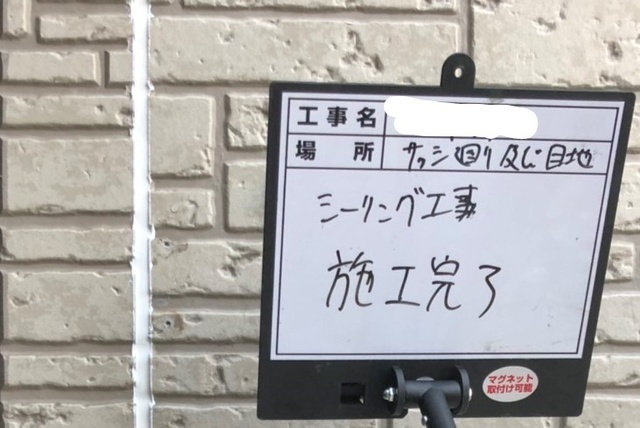 工事名
場所 サッシ廻り及び目地
シーリング工事
施工完了
マグネット
取付け可能